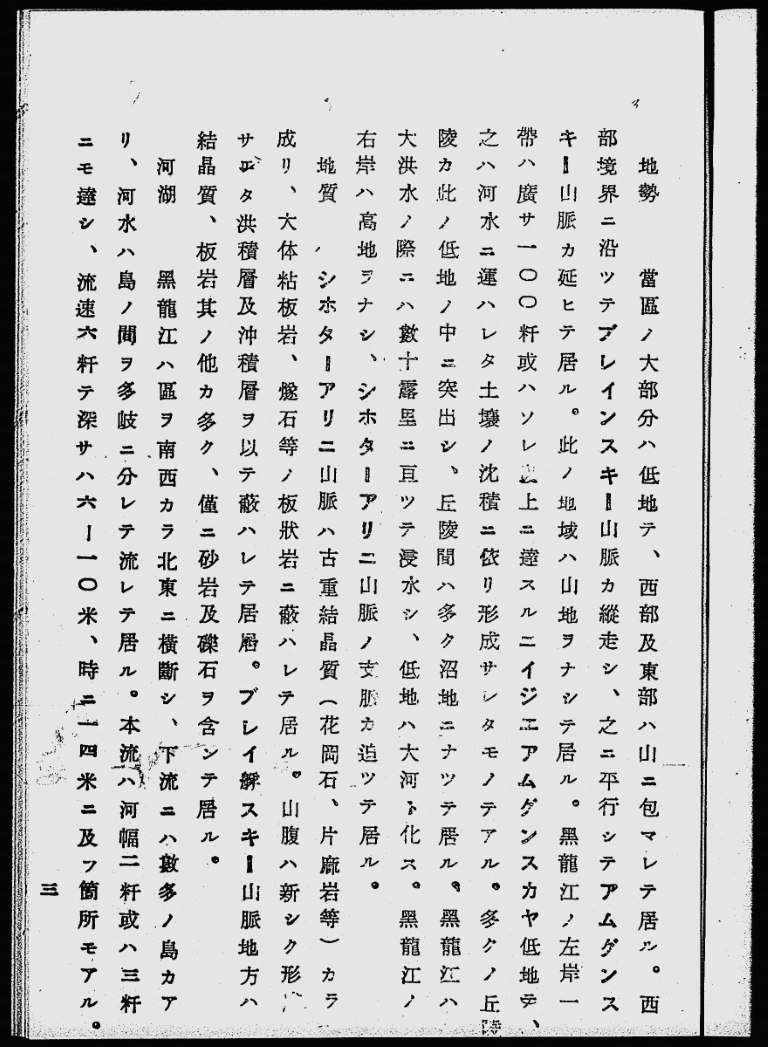 地勢　　當區ノ大部分ハ低地テ、西部及東部ハ山ニ包マレテ居ル。西
部境界ニ沿ツテブレインスキー山脈カ縱走シ、之ニ平行シテアムグンス
キー山脈カ延ヒテ居ル。此ノ地域ハ山地ヲナシテ居ル。黑龍江ノ左岸一
帶ハ廣サ一〇〇粁或ハソレ以上ニ達スルニイジエアムグンスカヤ低地テ、
之ハ河水ニ運ハレタ土壤ノ沈積ニ依リ形成サレタモノテアル。多クノ丘
陵カ此ノ低地ノ中ニ突出シ、丘陵間ハ多ク沼地ニナツテ居ル。黑龍江ハ
大洪水ノ際ニハ數十露里ニ亘ツテ浸水シ、低地ハ大河ト化ス。黑龍江ノ
右岸ハ高地ヲナシ、シホターアリニ山脈ノ支脈カ迫ツテ居ル。
地質　　シホターアリニ山脈ハ古重結晶質（花岡石、片麻岩等）カラ
成リ、大体粘板岩、燧石等ノ板狀岩ニ蔽ハレテ居ル。山腹ハ新シク形
サレタ洪積層及沖積層ヲ以テ蔽ハレテ居ル。ブレインスキー山脈地方ハ
結晶質、板岩其ノ他カ多ク、僅ニ砂岩及礫石ヲ含ンテ居ル。
河湖　　黑龍江ハ區ヲ南西カラ北東ニ横斷シ、下流ニハ數多ノ島カア
リ、河水ハ島ノ間ヲ多岐ニ分レテ流レテ居ル。本流ハ河幅二粁或ハ三粁
ニモ達シ、流速六粁テ深サハ六ー一〇米、時ニ一四米ニ及フ箇所モアル。
三